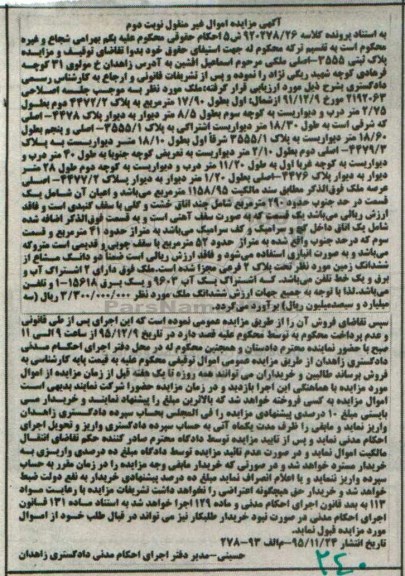 آگهی مزایده اموال غیر منقول نوبت دوم
به استناد پرونده کلاسه ۹۲۰۲۷۸/۲۶ ش۵ احکام حقوقی محکوم علیه بگم بهرامی شجاع و غیره
محکوم است به تقسیم ترکه محکوم له جهت استیفای حقوق خود بدوا تقاضای توقیف و مزایده
پلاک ثبتی ۳۵۵۵-اصلی ملکی مرحوم اسماعیل افشین به آدرس زاهدان خ مولوی ۳۱ کوچه
فرهادی کوچه شهید ریگی نژاد را نموده و پس از تشریفات قانونی و ارجاع به کارشناس رسمی
دادگستری بشرح ذیل مورد ارزیابی قرار گرفته:ملک مورد نظر به موجب جلسه اصلاحی
۲۱۹۲۰۶۳ مورخ ۹۱/۱۲/۹ ازشمال: اول بطول ۱۷/۹۰ مترمربع به پلاک ۴۴۷۲/۲ دوم بطول
۲/۷۵ متر درب و دیواریست به کوچه سوم بطول ۸/۵ متر دیوار به دیوار پلاک ۴۴۷۸- اصلی
که شرقی است به طول ۱۸/۳۰ متر دیواریست اشتراکی به پلاک ۳۵۵۵/۱- اصلی و پنجم بطول
۱۸/۶۰ متر دیواریست به پلاک ۳۵۵۵/۱ شرقا اول بطول ۱۸/۱۰ متر دیواریست به پلاک
۴۴۷۹/۳- اصلی دوم بطول ۲/۱۰ متر دیواریست به تعریض کوچه جنوبا به طول ۴۰ متر درب و
دیواریست به کوچه غربا اول به طول ۱۱/۲۰ متر درب و دیواریست به کوچه دوم طول ۲۸ متر
دیوار به دیوار پلاک ۴۴۷۶-اصلی بطول ۱/۲۰ متر دیوار به دیوار پلاک ۴۴۷۷/۲- اصلی
عرصه ملک فوق‌الذکر مطابق سند مالکیت ۱۱۵۸/۹۵ متر مربع می‌باشد و اعیان آن شامل یک
قسمت در حد جنوب حدود ۲۹۰ مترمربع شامل چند اتاق خشت و گلی با سقف گنبدی است و فاقد
ارزش ریالی می‌باشد یک قسمت که به صورت سقف آهنی است و به قسمت فوق‌الذکر اضافه شده
شامل یک اتاق داخل گچ و سرامیک و کف سرامیک می‌باشد به متراژ حدود ۴۱ مترمربع و قسمت
سوم که درحد جنوب واقع شده به متراژ حدود ۵۲ مترمربع با سقف چوبی و قدیمی است متروکه
می‌باشد و به صورت انباری استفاده می‌شود و فاقد ارزش ریالی است ضمنا دو دانگ مشاع از
ششدانگ زمین مورد نظر تحت پلاک ۲ فرعی مجزا شده است.ملک فوق دارای ۲ اشتراک آب و
برق و یک خط تلفن می‌باشد. که اشتراک یک آب ۹۶۰۳ و یک برق ۱۵۶۱۸-۱ و تلفن
می‌باشد.لذا با توجه به جمیع جهات ارزش ششدانگ ملک مورد نظر ۳/۳۰۰/۰۰۰/۰۰۰ ریال (سه
میلیارد و سیصدمیلیون ریال) برآورد می‌گردد.
سپس تقاضای فروش آن را از طریق مزایده عمومی نموده است که این اجرای پس از طی قانونی
و عدم پرداخت محکوم به توسط محکوم علیه قصد دارد در تاریخ ۹۵/۱۲/۹ از ساعت ۹ الی ۱۱
صبح با حضور نماینده محترم دادستان و همچنین محکوم له در محل دفتر اجرای احکام مدنی
دادگستری زاهدان از طریق مزایده عمومی اموال توقیفی محکوم علیه به قیمت پایه کارشناسی به
فروش برساند طالبین و خریداران می توانند همه روزه تا یک هفته قبل از زمان مزایده از اموال
مورد مزایده با هماهنگی این اجرا بازدید و در زمان مزایده حضورا شرکت نمایند بدیهی است
اموال مزایده به کسی فروخته خواهد شد که بالاترین مبلغ را پیشنهاد نمایند و خریدار می
بایستی مبلغ ۱۰ درصدی پیشنهادی مزایده را فی المجلس بحساب سپرده دادگستری زاهدان
واریز نماید و مابقی را ظرف مدت یکماه آتی به حساب سپرده دادگستری واریز و تحویل اجرای
احکام مدنی نماید و پس از تایید مزایده توسط دادگاه محترم صادر کننده حکم تقاضای انتقال
مالکیت اموال نماید و در صورت عدم تائید مزایده توسط دادگاه مبلغ ده درصدی واریزی به
خریدار مسترد خواهد شد و در صورتی که خریدار مابقی وجه مزایده را در زمان مقرر به حساب
سپرده واریز ننماید و یا اعلام انصراف نماید مبلغ ده درصد پیشنهادی خریدار به نفع دولت ضبط
خواهد شد و خریدار حق هیچگونه اعتراضی را نخواهد داشت تشریفات مزایده با رعایت مواد
۱۱۳ به بعد قانون اجرای احکام مدنی و ماده ۱۲۹ اجرا خواهد شد به استناد ماده ۱۳۱ قانون
اجرای احکام مدنی در صورت نبود خریدار طلبکار نیز می تواند در قبال طلب خود از اموال
مورد مزایده قبول نماید.
تاریخ انتشار ۹۵/۱۱/۲۳-م‌الف ۹۳-۲۷۸
حسینی-مدیر دفتر اجرای احکام مدنی دادگستری زاهدان
۲۴۰